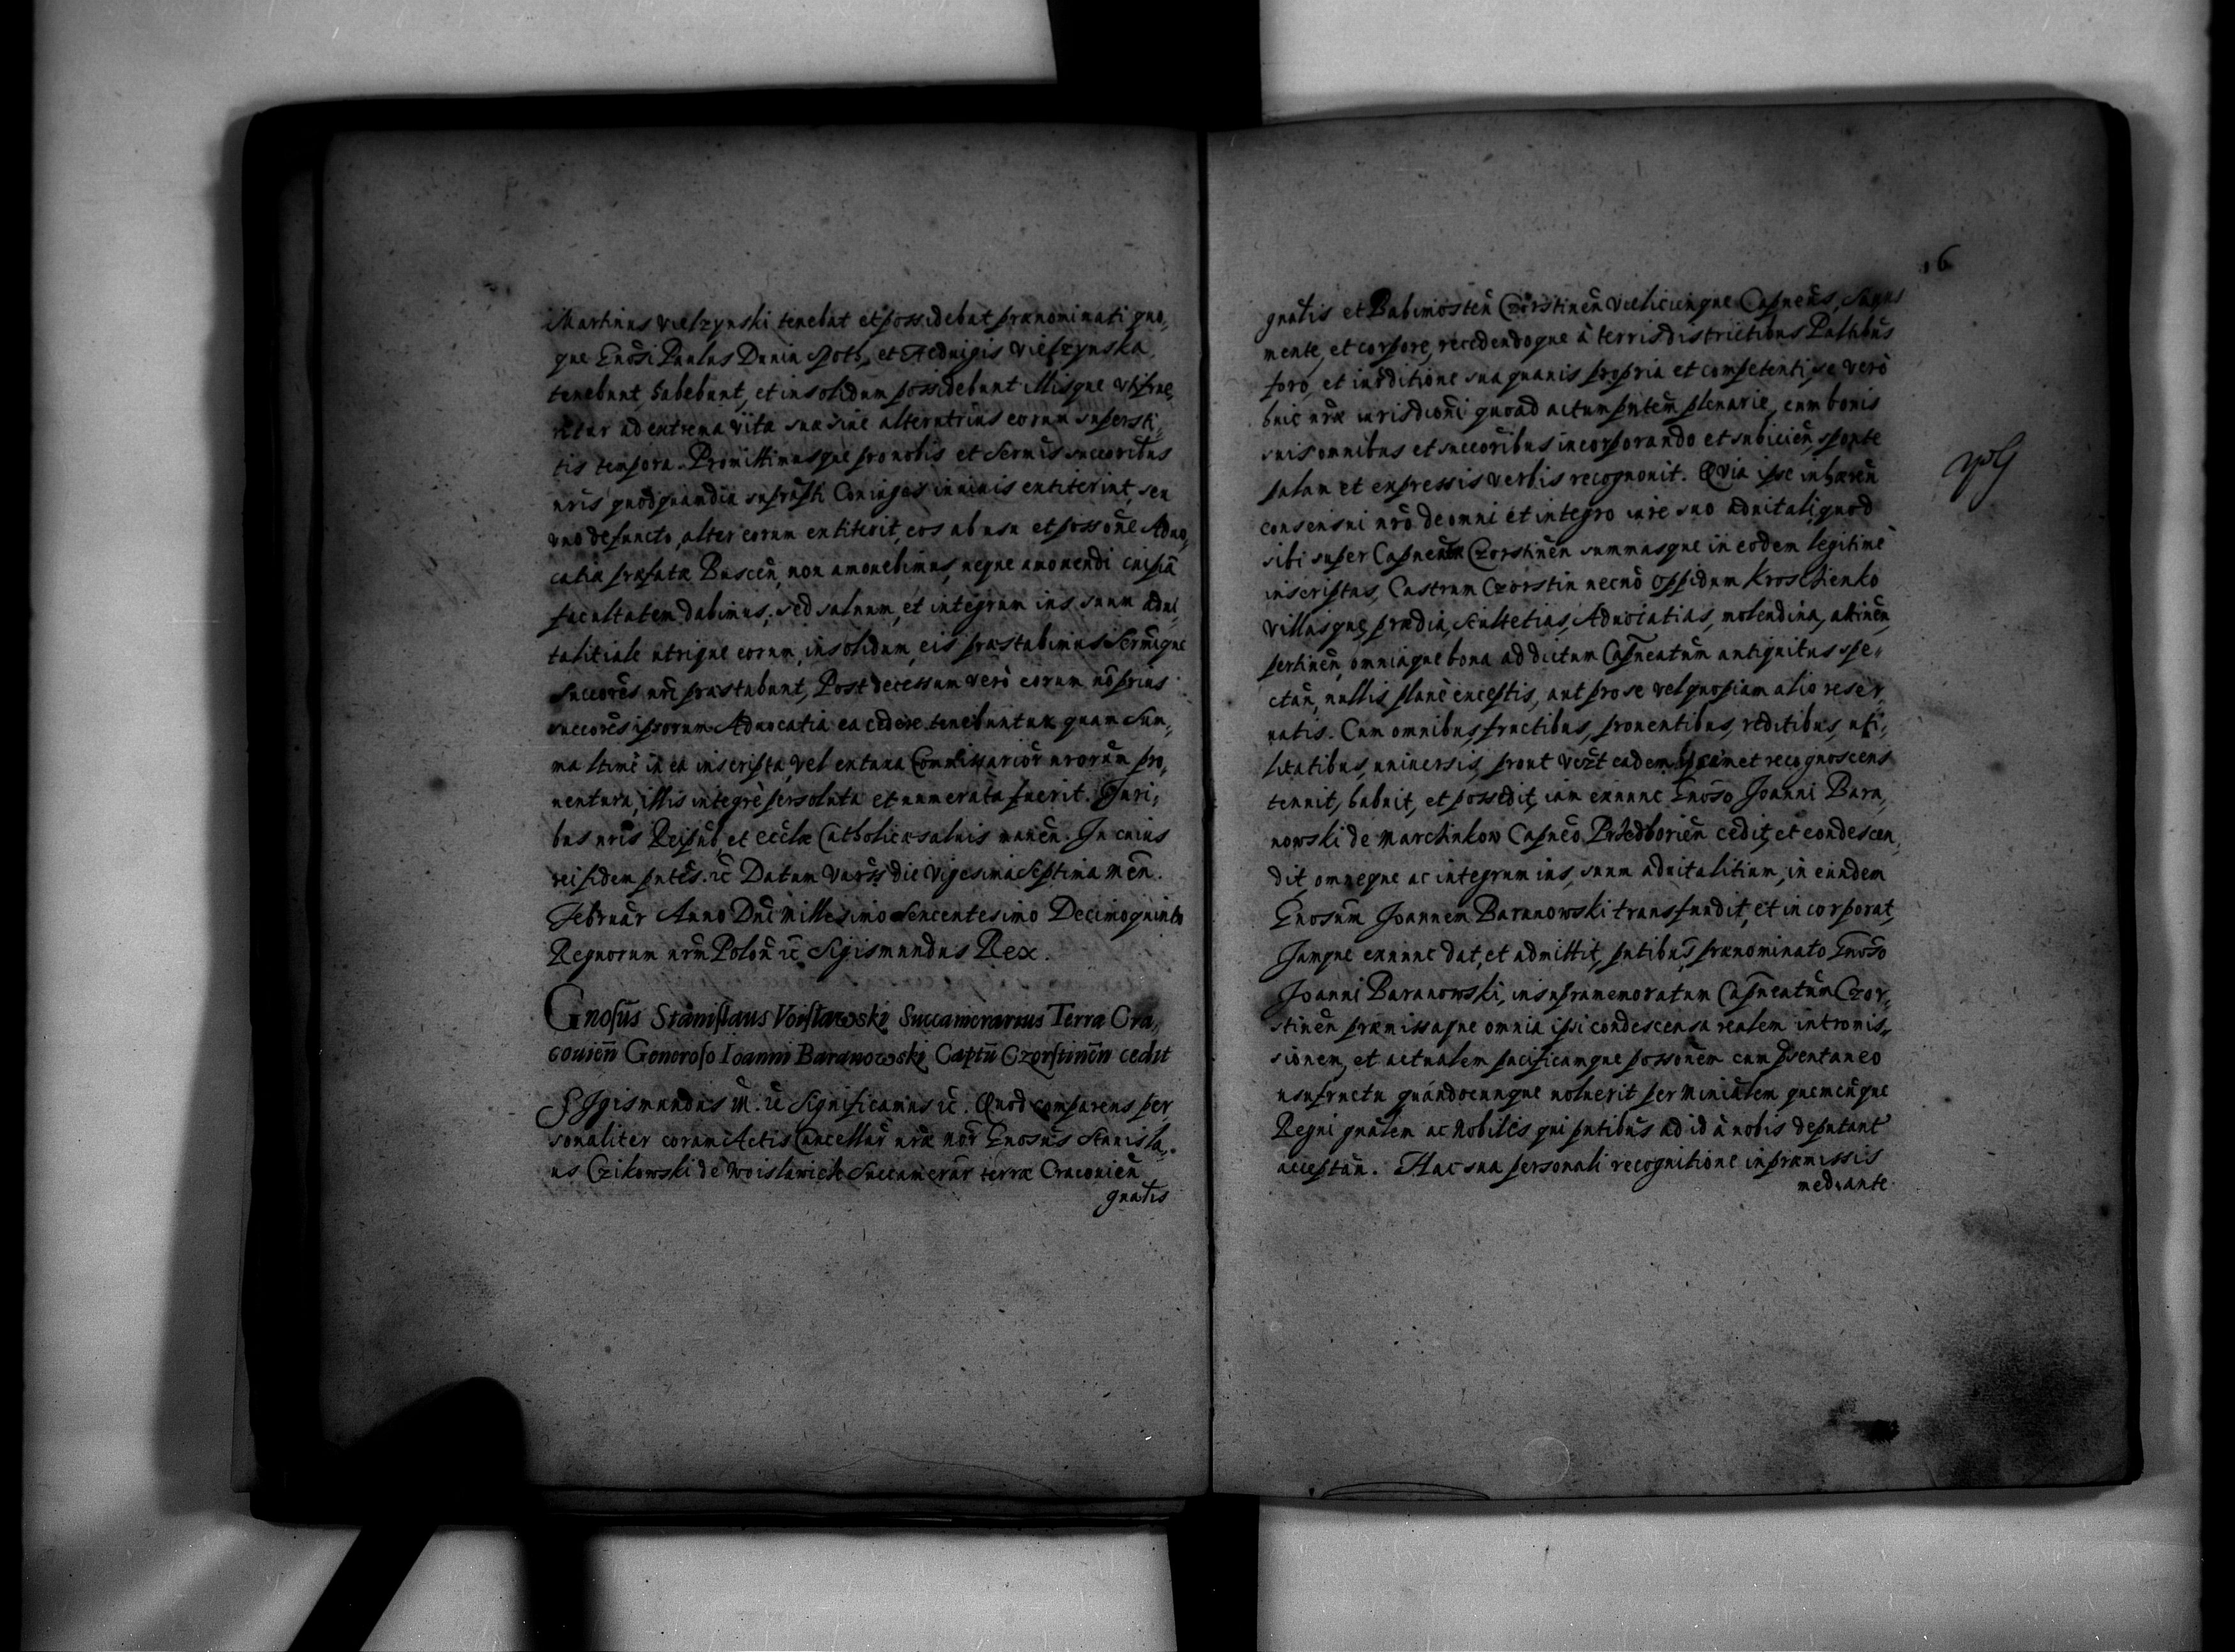 Martinus Vielzynski tenebat et possidebat prænominati quo,
que Gnosi Paulus Dunin Spoth, et Heduigis Vielzynska
tenebunt, habebunt, et in solidum possidebunt illisque vtifrue,
ntur ad extrema vitæ suæ siue alterutrius eorum supersti,
tis tempora. Promittimusque pro nobis et Sermis succoribus
nris quod quamdiu suprascpti Coniuges in viuis extiterint, seu
vno defuncto, alter eorum extiterit, eos ab usu et possone Aduo,
catiæ præfatæ Buscen, non amouebimus, neque amouendi cuipiã
facultatem dabimus, sed saluum, et integrum ius suum adui,
talitiale utrique eorum, in solidum, eis præstabimus Sermique
Succores nri præstabunt, Post decessum verò eorum nõ prius
succores ipsorum Aduocatia ea cedere tenebuntur quam Sum,
ma ltimè in ea inscripta, vel ex taxa Commissarior nrorum pro,
uentura, illis integrè persoluta et numerata fuerit. Juri,
bus nris Reipub, et ecclæ Catholicæ saluis manen. In cuius
rei fidem pntes. ec̃ Datum Vars die Vigesima Septima Men.
Februar Anno Dni Millesimo Sexcentesimo Decimoquinto
Regnorum nrm Polon ec̃ Sigismundus Rex.
Gnosus Stanislaus Voislawski Succamerarius Terræ Cra,
couien Generoso Ioanni Baranowski Captũ Czorstinen cedit
SIgismundus III. ec̃ Significamus ec̃. Quod comparens per
sonaliter coram Actis Cancellar nræ nor Gnosus Stanisla,
us Czikowski de Woislawice Succamerar terræ Cracouien
gnalis
16
gnalis et Babimosten Czorstinen Vieliciunque Capneus, Sanus
mente, et corpore, recedendoque à terris districtibus Paltibus
foro, et iurditione sua quauis propria et competenti, se verò
huic nræ iurisdioni quoad actum pntem plenarie, cum bonis
suis omnibus et succoribus incorporando et subicien, sponte
palam et expressis verbis recognouit. Quia ipse inhæren
consensui nrõ de omni et integro iure suo aduitali, quod
sibi super Capneatu Czorstinen summasque in eodem legitimè
inscriptas, Castrum Czorstin necnõ oppidum Kroschienko
villasque, prædia, Scultetias, Aduocatias, molendina, attinen,
pertinen, omniaque bona ad dictum Capneatum antiquitus spe,
ctan, nullis planè exceptis, aut pro se vel quopiam alio reser,
uatis. Cum omnibus, fructibus, prouentibus, reditibus, uti,
litatibus, uniuersis, prout eadem recognoscens
tenuit, habuit, et possedit, iam exnunc Gnoso Joanni Bara,
nowski de Marchinkow Capneo Przedborien cedit, et condescen,
dit, omneque ac integrum ius, suum aduitalitium, in eundem
Gnosum Joannem Baranowski transfundit, et incorporat,
Jamque exnunc dat, et admittit, pntibus prænominato Gnoso
Joanni Baranowski, in supramemoratum Capneatum Czor,
stinen præmissaque omnia ipsi condescensa realem intromis,
sionem, et actualem pacificamque possonem cum psentaneo
usufructu quandocunque voluerit per Minialem quemcunque
Regni gnalem ac Nobiles qui pntibus ad id à nobis deputant
acceptan. Hac sua personali recognitione in præmissis
mediante